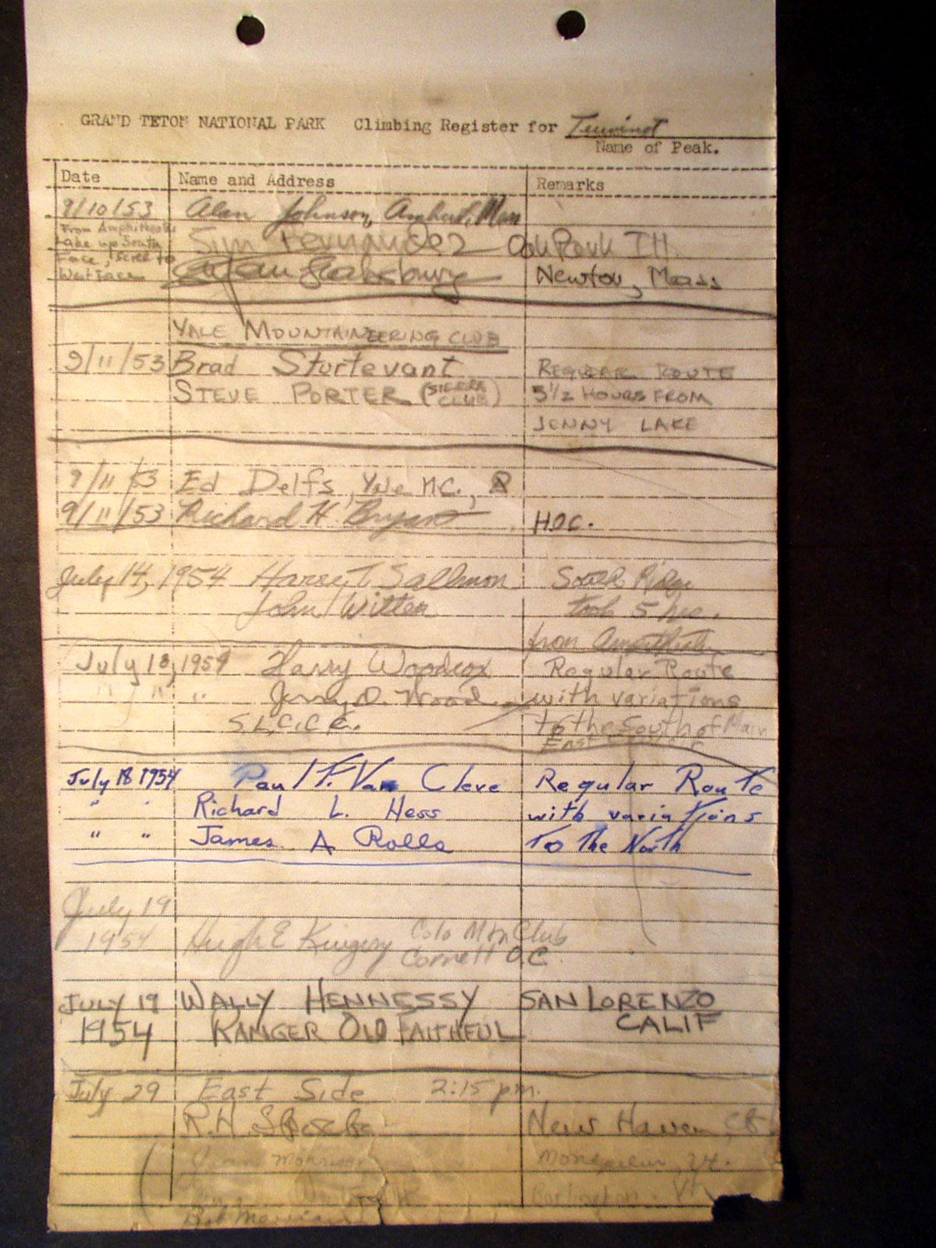 GRAND TETON NATIONAL PARK Climbing Register for Teewinot
Name of Peak.
Date Name and Address Remarks
9/10/53 Alan Johnson, Amherst, Mass
From Amphitheater
take up South
Face,
West Face
Sim Fernandez Oak Park Ill.
Newton, Mass
YALE MOUNTAINEERING CLUB
9/11/53 Brad Sturtevant REGULAR ROUTE
STEVE PORTER (SIERRA CLUB) 5 1/2 HOURS FROM
JENNY LAKE
9/11/53 Ed Delfs, Yale M.C.,
9/11/53 Richard H. Bryant H.O.C.
July 14, 1954 Harry T. Sallmon South Ridge
John Witten took 5 hrs.
from
July 18, 1954 Harry Woodcox Regular Route
" " " Jerry D. Wood with variations
S.L.C.C.C. to the South of Main
East
July 18 1954 Paul F. Van Cleve Regular Route
" " Richard L. Hess with variations
" " James A Rolla To The North
July 19
1954 Hugh E Kingery Colo Mtn Club
Cornell O.C.
JULY 19 WALLY HENNESSY SAN LORENZO
1954 RANGER OLD FAITHFUL CALIF
July 29 East Side 2:15 pm.
R.H. New Haven, Ct
Montpelier, Vt.
Burlington Vt
Bob